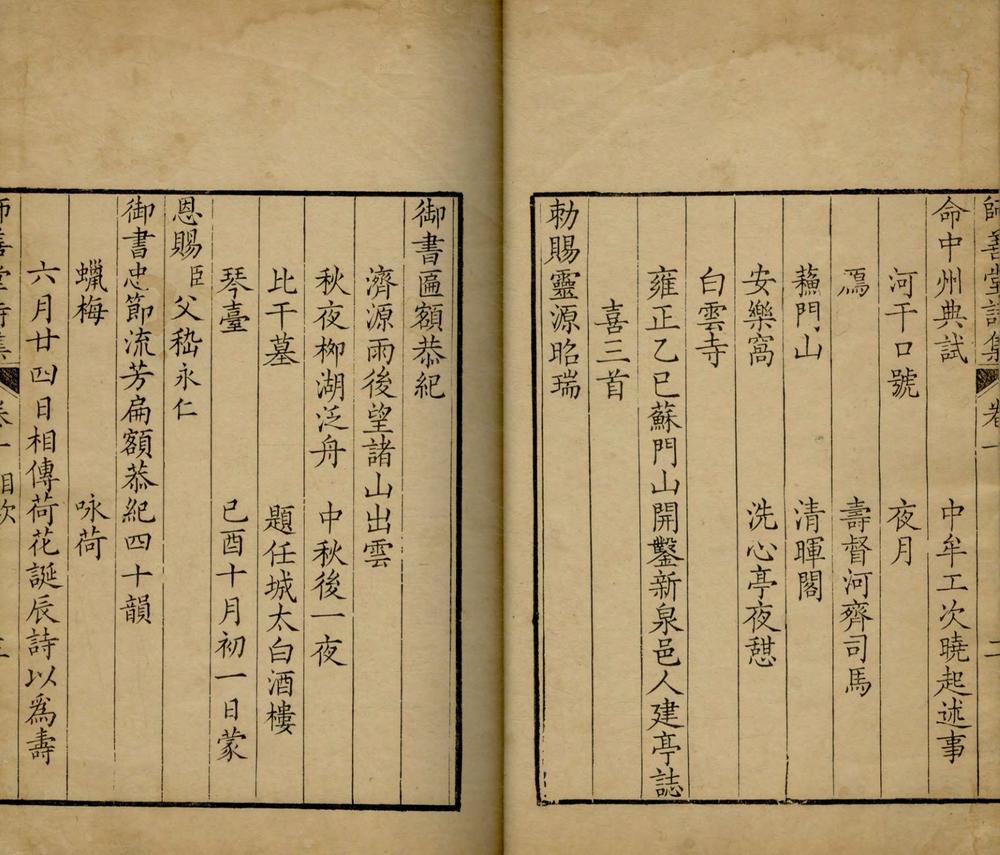 師善堂詩集 卷一 二
命中州典試 中牟工次曉起述事
河干口號 夜月
鴈 壽督河齊司馬
蘓門山 清暉閣
安樂窩 洗心亭夜憇
白雲寺
雍正乙巳蘇門山開鑿新泉邑人建亭誌
喜三首
勅賜靈源昭瑞
御書匾額恭紀
濟源雨後望諸山出雲
秋夜栁湖泛舟 中秋後一夜
比干墓 題任城太白酒樓
琴臺 已酉十月初一日蒙
恩賜臣父嵇永仁
御書忠節流芳扁額恭紀四十韻
蠟梅 咏荷
六月廿四日相傳荷花誕辰詩以爲壽
師善堂詩集 卷一 目次 三